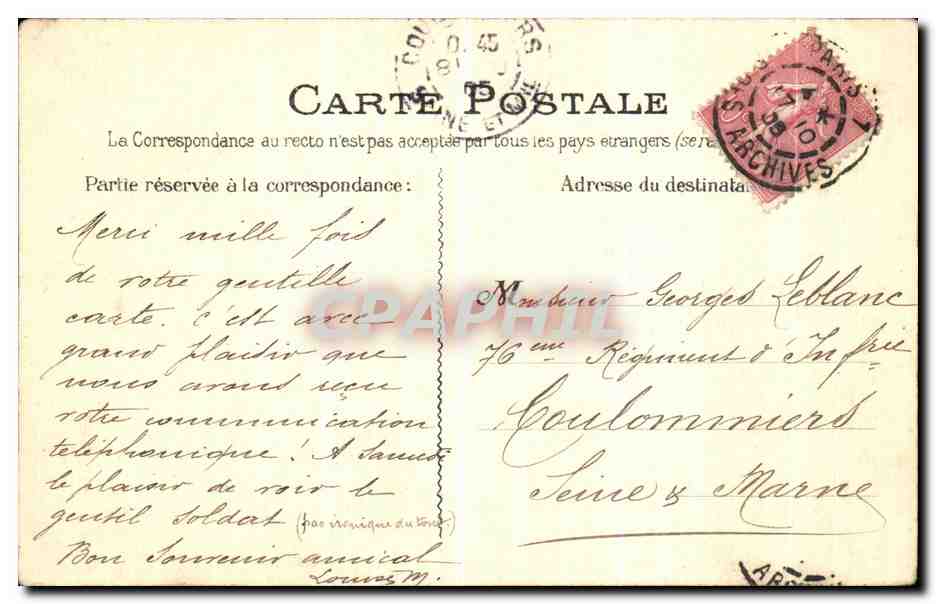 CARTE POSTALE
La Correspondance au recto n'est pas acceptée par tous les pays etrangers (se re
Partie réservée à la correspondance:
Adresse du destinata
Merci mille fois
de votre gentille
carte. C'est avec
grand plaisir que
nous avons reçu
votre communication
téléphonique! A Samedi
le plaisir de voir le
gentil soldat (pas ironique du tout)
Bon Souvenir amical
Louise M.
Monsieur Georges Leblanc
76eme Régiment d'Infrie
Coulommiers
Seine & Marne
CPARAPHIL
45
05
SEINE ET M
PARIS
17 10
05
ARCHIVES